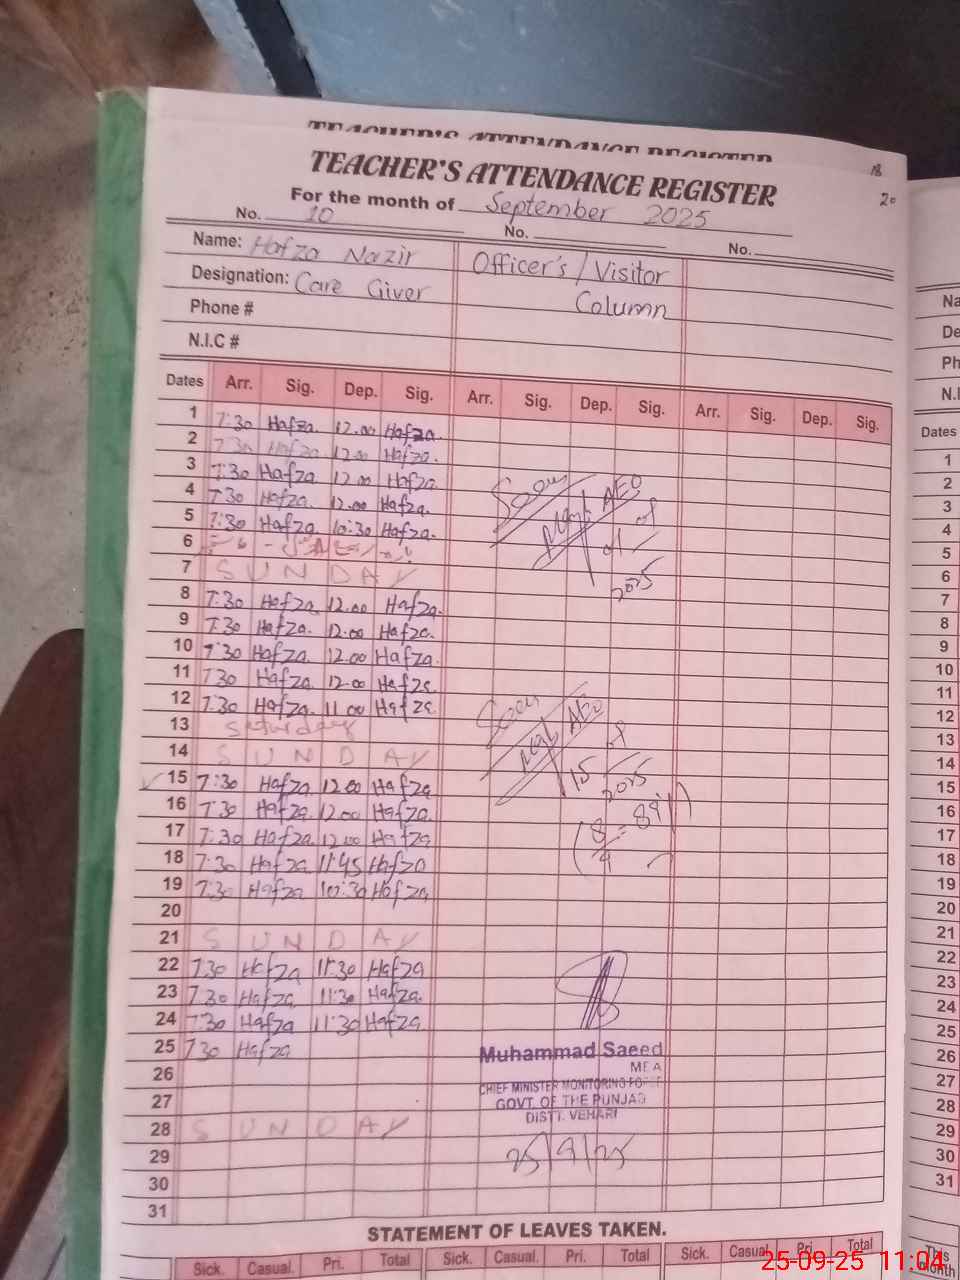 TEACHER'S ATTENDANCE REGISTER
TEACHER'S ATTENDANCE REGISTER
18
20
For the month of September 2025
No. 10 No. No.
Name: Hafza Nazir Officer's / Visitor
Designation: Care Giver Column
Phone #
N.I.C #
Dates Arr. Sig. Dep. Sig. Arr. Sig. Dep. Sig. Arr. Sig. Dep. Sig.
1 7:30 Hafza. 12.00 Hafza.
2 7:30 Hafza 12.00 Hafza.
3 7:30 Hafza 12.00 Hafza
4 7:30 Hafza. 12.00 Hafza.
5 7:30 Hafza. 10:30 Hafza.
6
7 SUNDAY
8 7:30 Hafza. 12.00 Hafza.
9 7:30 Hafza. 12.00 Hafza.
10 7:30 Hafza. 12.00 Hafza.
11 7:30 Hafza. 12.00 Hafza
12 7:30 Hafza. 11.00 Hafza
13 Saturday
14 SUNDAY
15 7:30 Hafza 12.00 Hafza
16 7:30 Hafza. 12.00 Hafza.
17 7:30 Hafza. 12.00 Hafza
18 7:30 Hafza 11:45 Hafza
19 7:30 Hafza 10:30 Hafza
20
21 SUNDAY
22 7:30 Hafza 11:30 Hafza
23 7:30 Hafza 11:30 Hafza.
24 7:30 Hafza 11:30 Hafza
25 7:30 Hafza
26
27
28 SUNDAY
29
30
31
AEO
2025
AEO
15
2025
8/9 = 89%
Muhammad Saeed
MEA
CHIEF MINISTER MONITORING FORCE
GOVT. OF THE PUNJAB
DISTT. VEHARI
25/9/25
STATEMENT OF LEAVES TAKEN.
Sick. Casual. Pri. Total Sick. Casual. Pri. Total Sick. Casual. Pri. Total
Na
De
Ph
N.I
Dates
1
2
3
4
5
6
7
8
9
10
11
12
13
14
15
16
17
18
19
20
21
22
23
24
25
26
27
28
29
30
31
This
Month
25-09-25 11:04